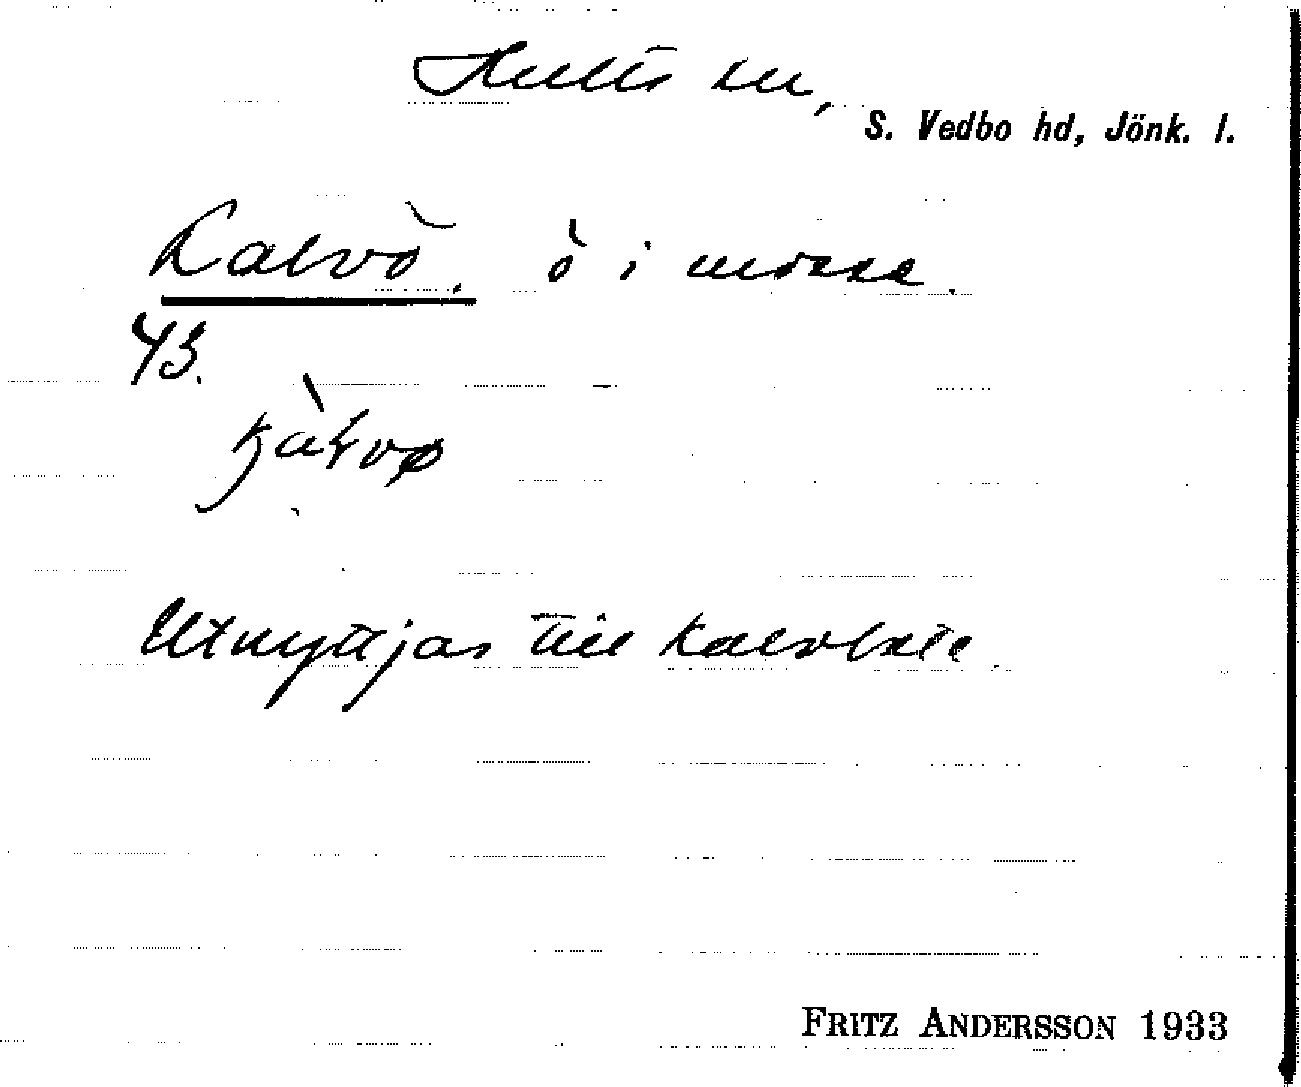 Hults sn,
S. Vedbo hd, Jönk. l.
Kalvö. ö i mosse.
43.
kàlvø
Utnyttjas till kalvbete.
FRITZ ANDERSSON 1933